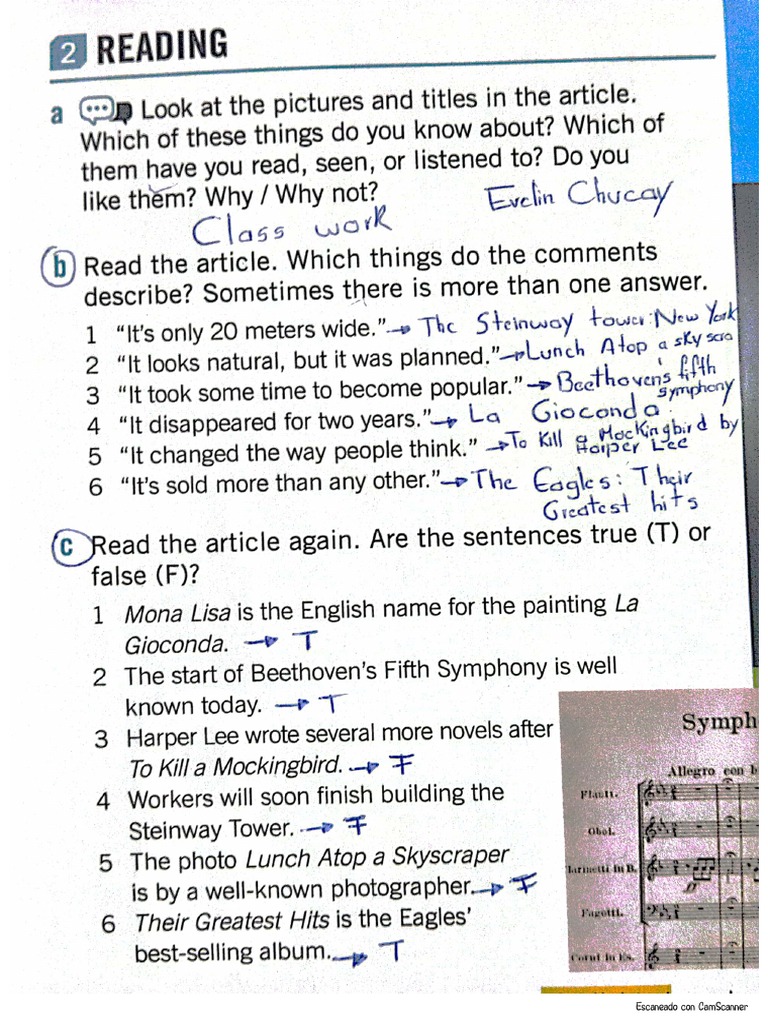 2 READING
a Look at the pictures and titles in the article.
Which of these things do you know about? Which of
them have you read, seen, or listened to? Do you
like them? Why / Why not?
Evelin Chucay
Class work
b Read the article. Which things do the comments
describe? Sometimes there is more than one answer.
1 “It’s only 20 meters wide.” → The Steinway tower: New York
2 “It looks natural, but it was planned.” → Lunch Atop a sky scra
3 “It took some time to become popular.” → Beethoven's fifth
symphony
4 “It disappeared for two years.” → La Gioconda
5 “It changed the way people think.” → To Kill a Mockingbird by
Harper Lee
6 “It’s sold more than any other.” → The Eagles: Their
Greatest hits
c Read the article again. Are the sentences true (T) or
false (F)?
1 Mona Lisa is the English name for the painting La
Gioconda. → T
2 The start of Beethoven’s Fifth Symphony is well
known today. → T
3 Harper Lee wrote several more novels after
To Kill a Mockingbird. → F
4 Workers will soon finish building the
Steinway Tower. → F
5 The photo Lunch Atop a Skyscraper
is by a well-known photographer. → F
6 Their Greatest Hits is the Eagles’
best-selling album. → T
Symph
Allegro con b
Flauti.
Oboi.
Clarinetti in B.
Fagotti.
Corni in Es.
Escaneado con CamScanner